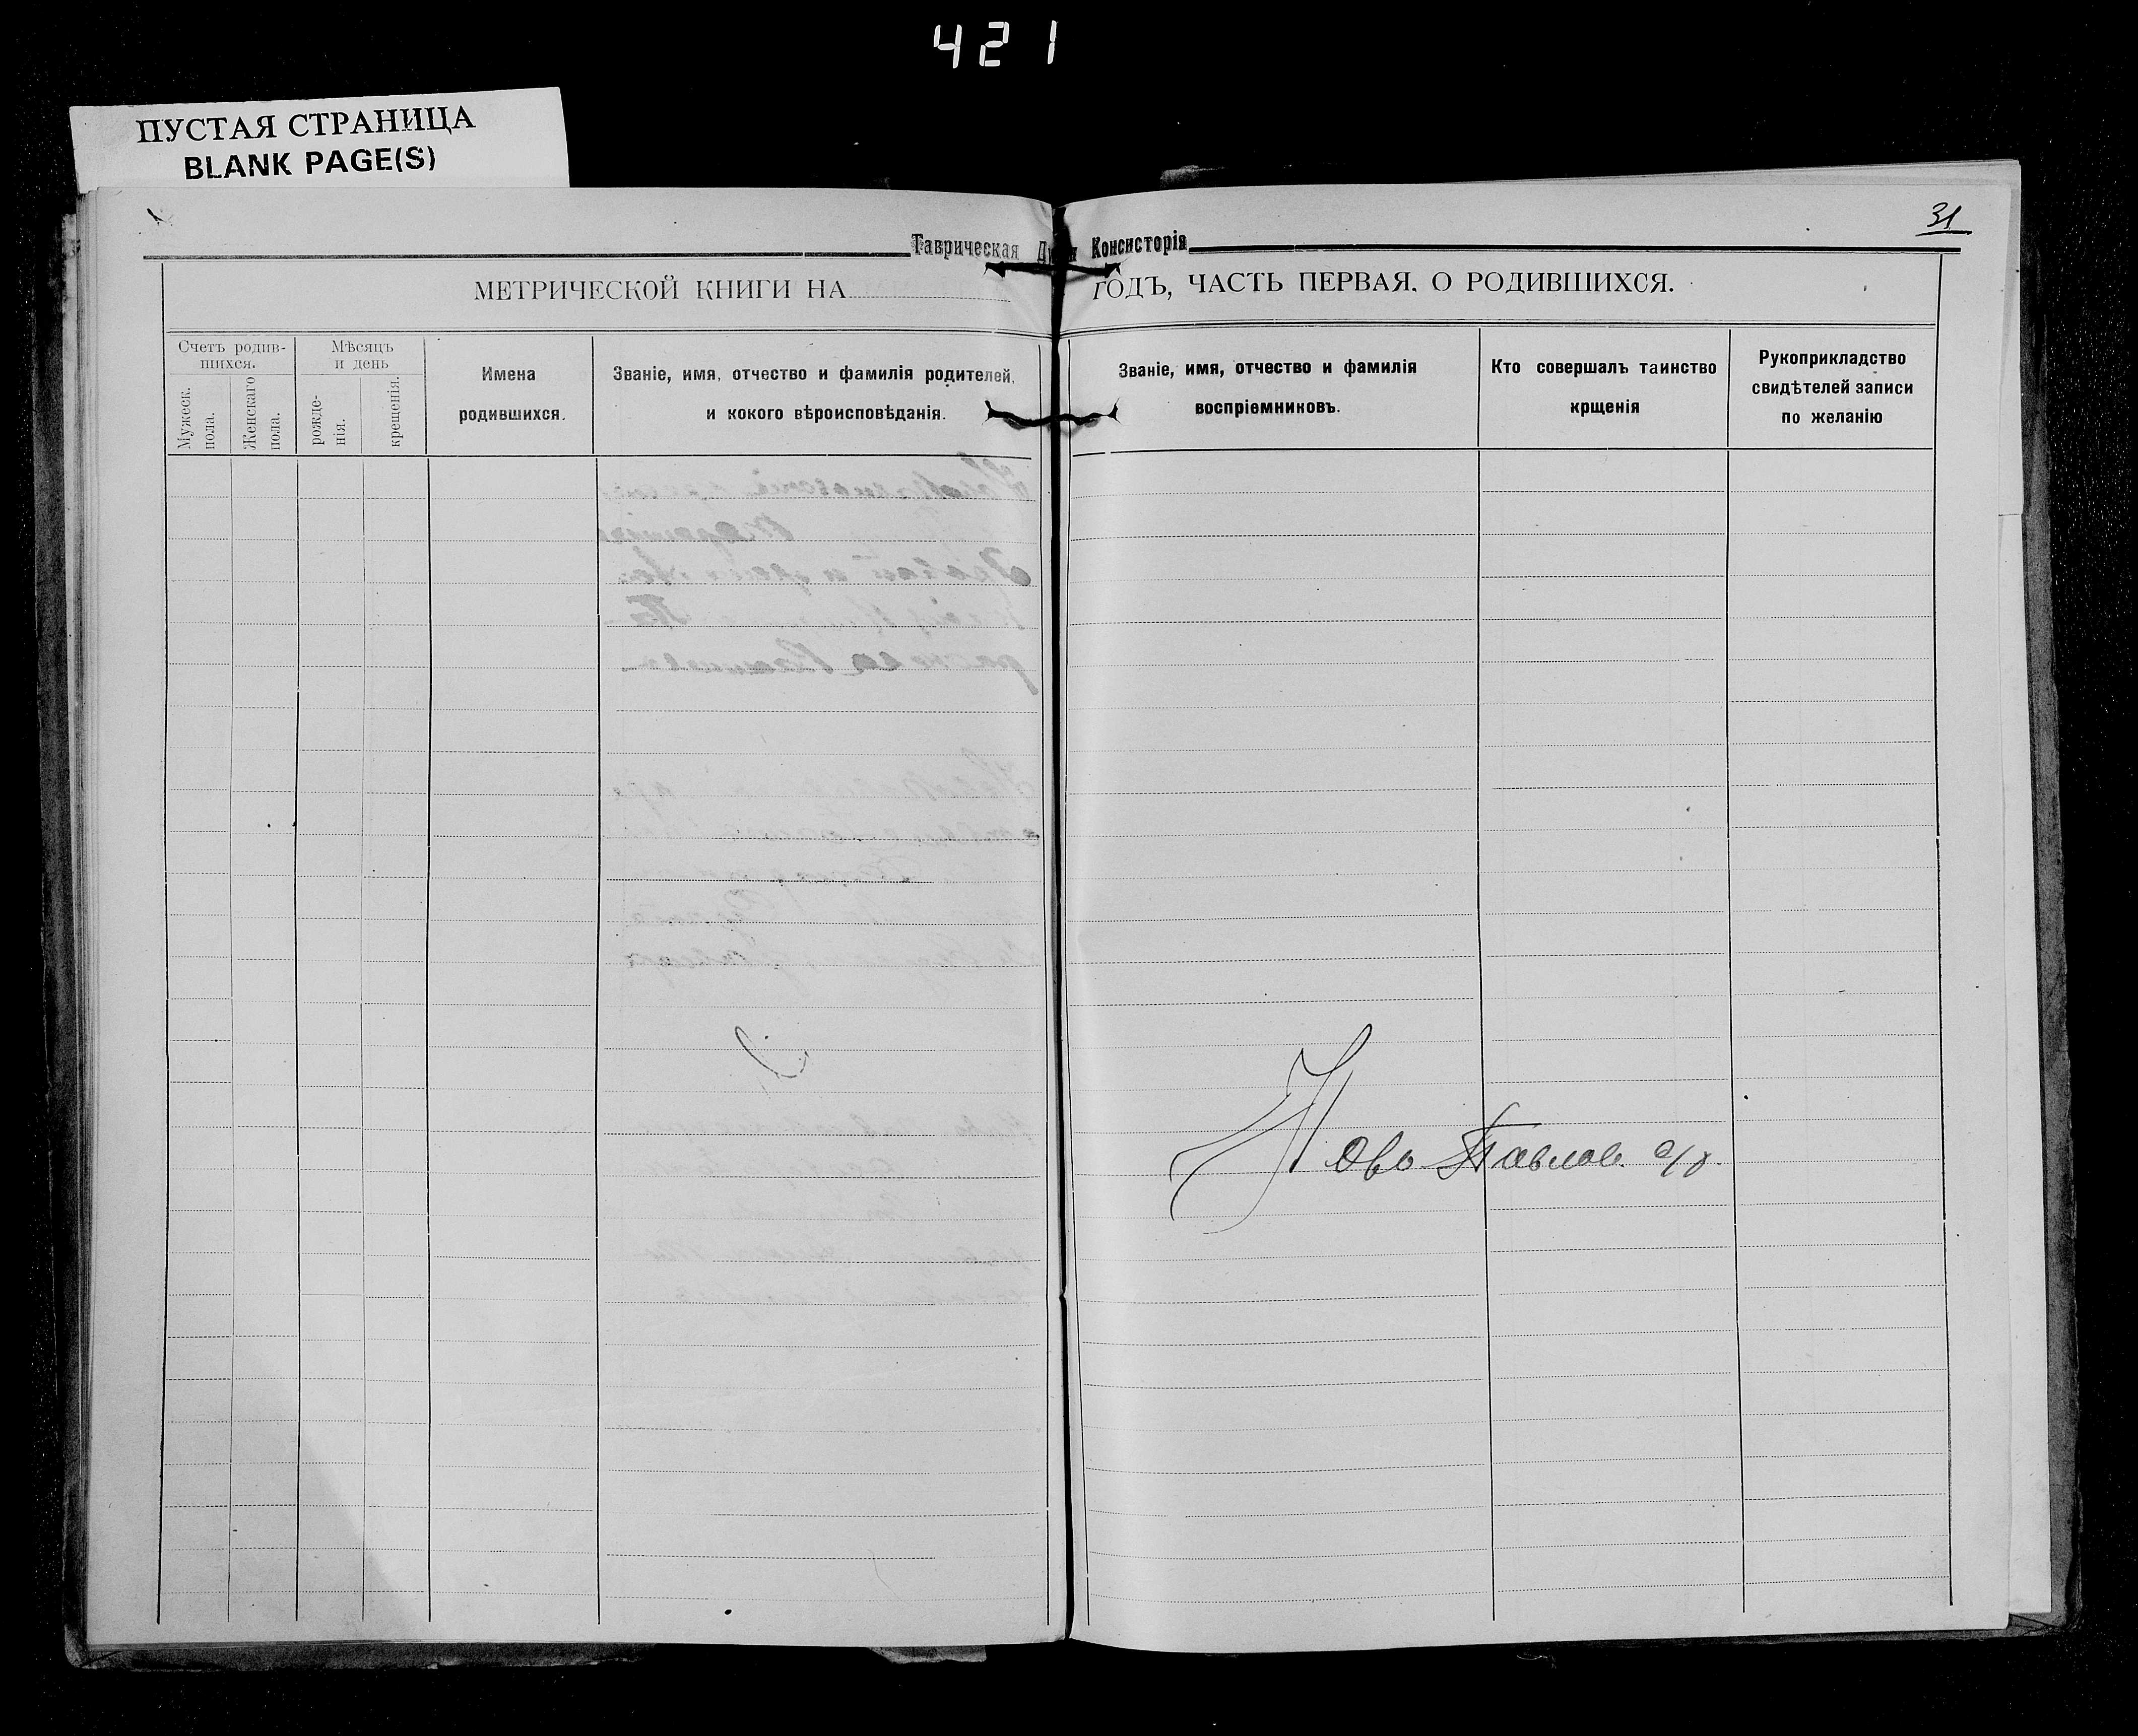 421
ПУСТАЯ СТРАНИЦА
BLANK PAGE(S)
31
Таврическая Консисторія
МЕТРИЧЕСКОЙ КНИГИ НА ГОДЪ, ЧАСТЬ ПЕРВАЯ. О РОДИВШИХСЯ.
Счетъ родив-
шихся.
Мужеск.
пола.
Женскаго
пола.
Мѣсяцъ
и день
рожде-
нія.
крещенія.
Имена
родившихся.
Званіе, имя, отчество и фамилія родителей,
и кокого вѣроисповѣданія.
Званіе, имя, отчество и фамилія
воспріемниковъ.
Кто совершалъ таинство
крщенія
Рукоприкладство
свидѣтелей записи
по желанію
Ново Павлов.